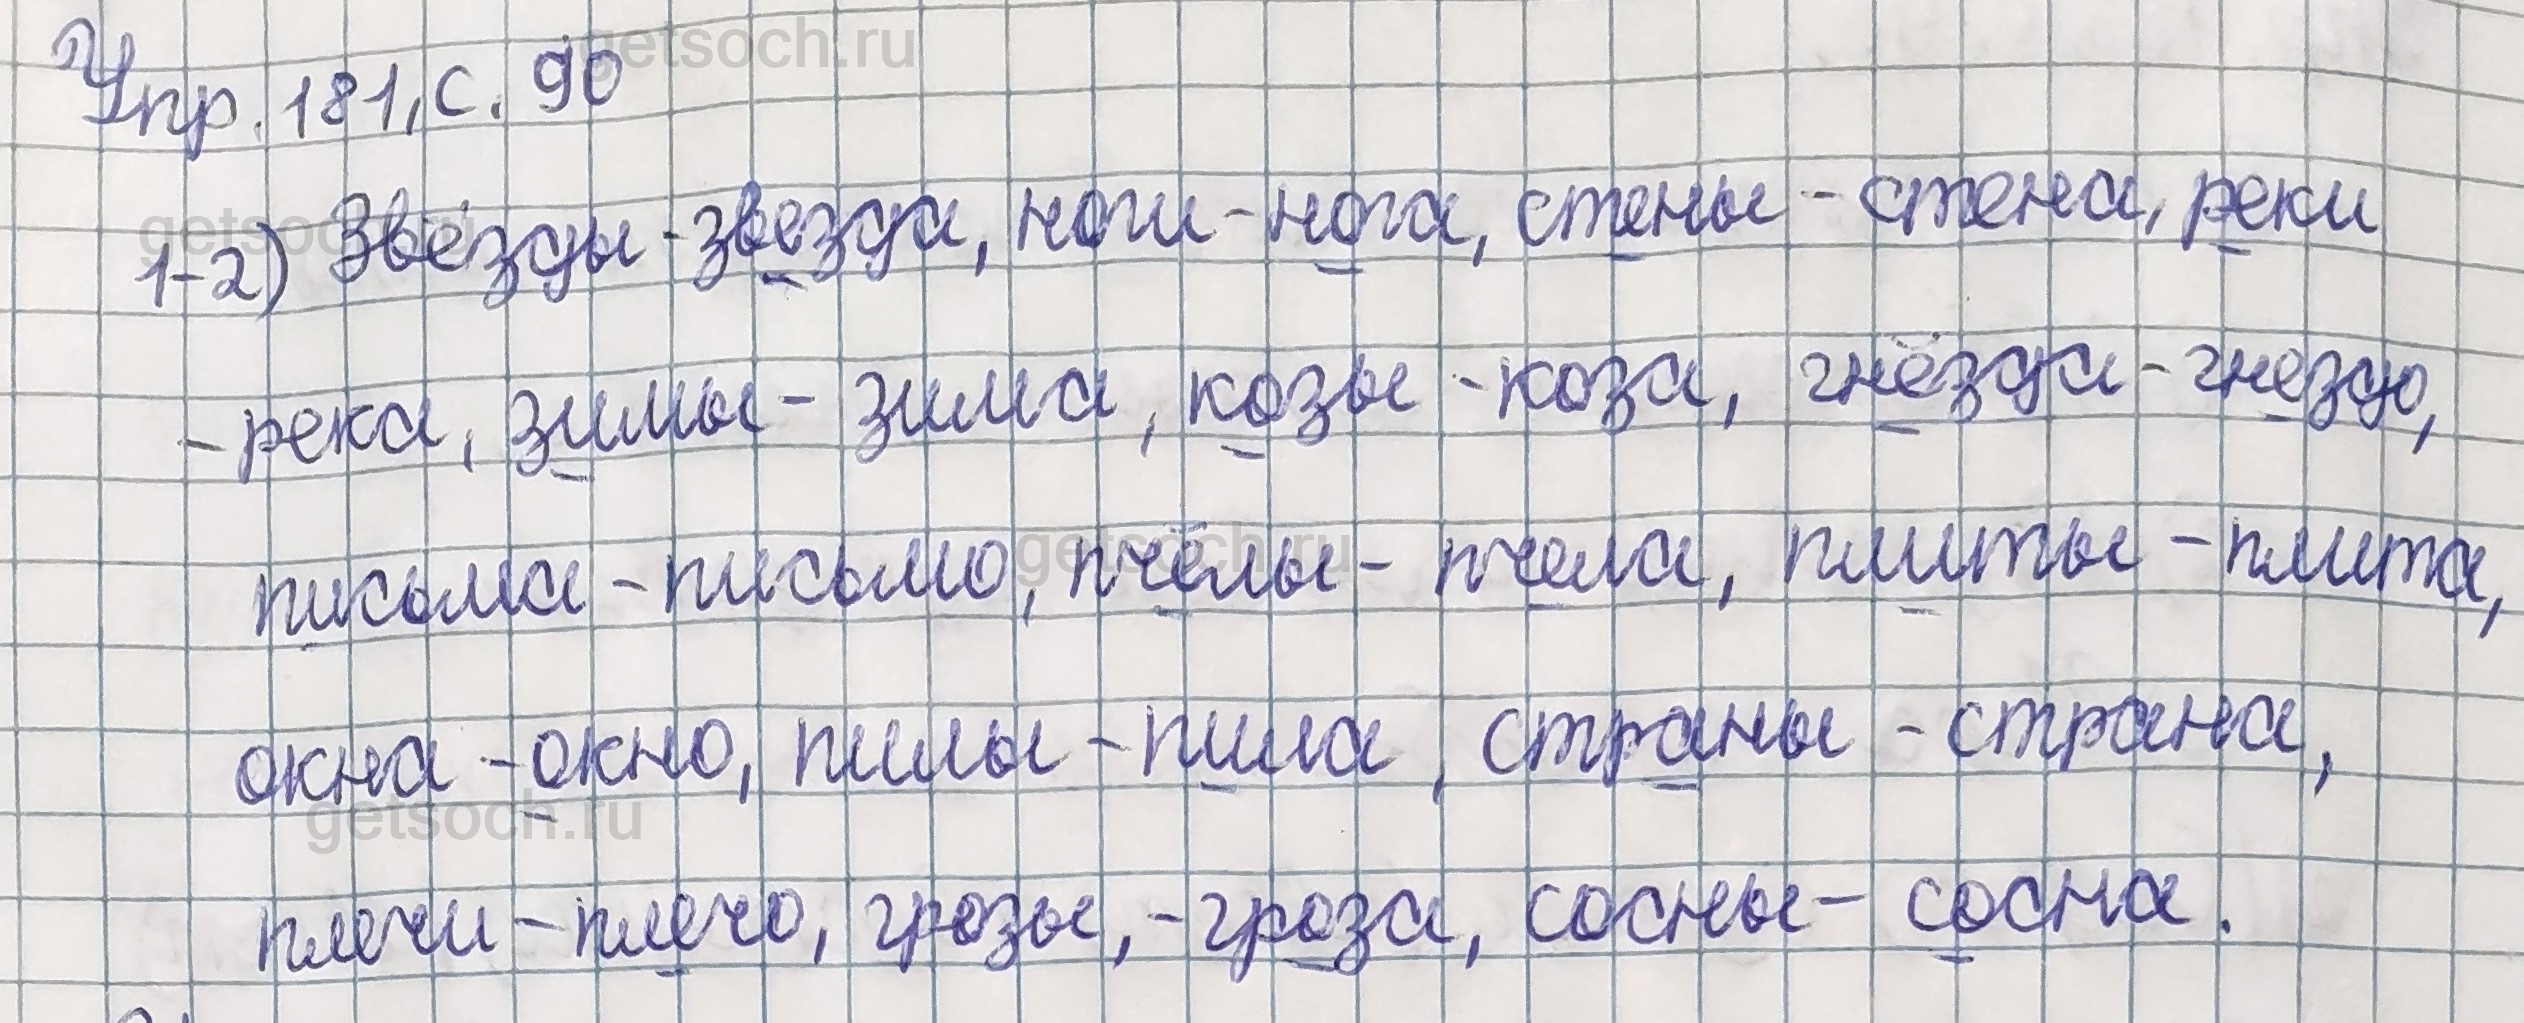 getsoch.ru
Упр. 181, с. 90
getsoch.ru
1-2) Звёзды - звезда, ноги - нога, стены - стена, реки
- река, зимы - зима, козы - коза, гнёзда - гнездо,
getsoch.ru
письма - письмо, пчёлы - пчела, плиты - плита,
окна - окно, пилы - пила, страны - страна,
getsoch.ru
плечи - плечо, грозы, - гроза, сосны - сосна.